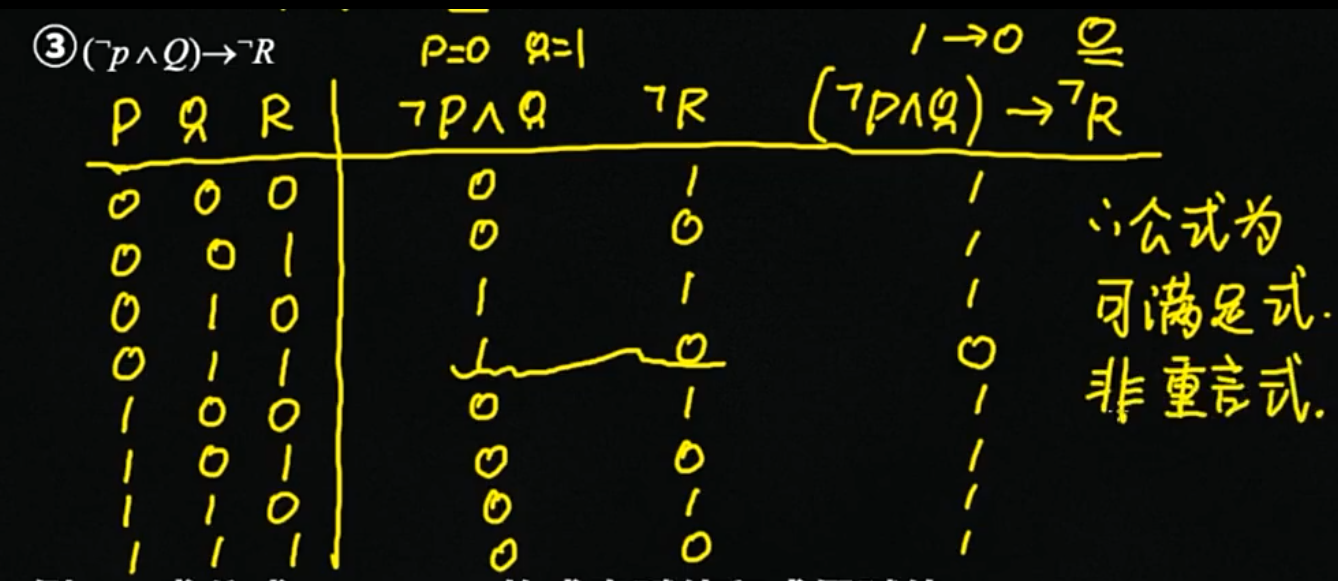 ③(¬p∧Q)→¬R P=0 Q=1 1→0 0
P Q R ¬P∧Q ¬R (¬P∧Q)→¬R
0 0 0 0 1 1
0 0 1 0 0 1
0 1 0 1 1 1
0 1 1 1 0 0
1 0 0 0 1 1
1 0 1 0 0 1
1 1 0 0 1 1
1 1 1 0 0 1
∴公式为
可满足式.
非重言式.